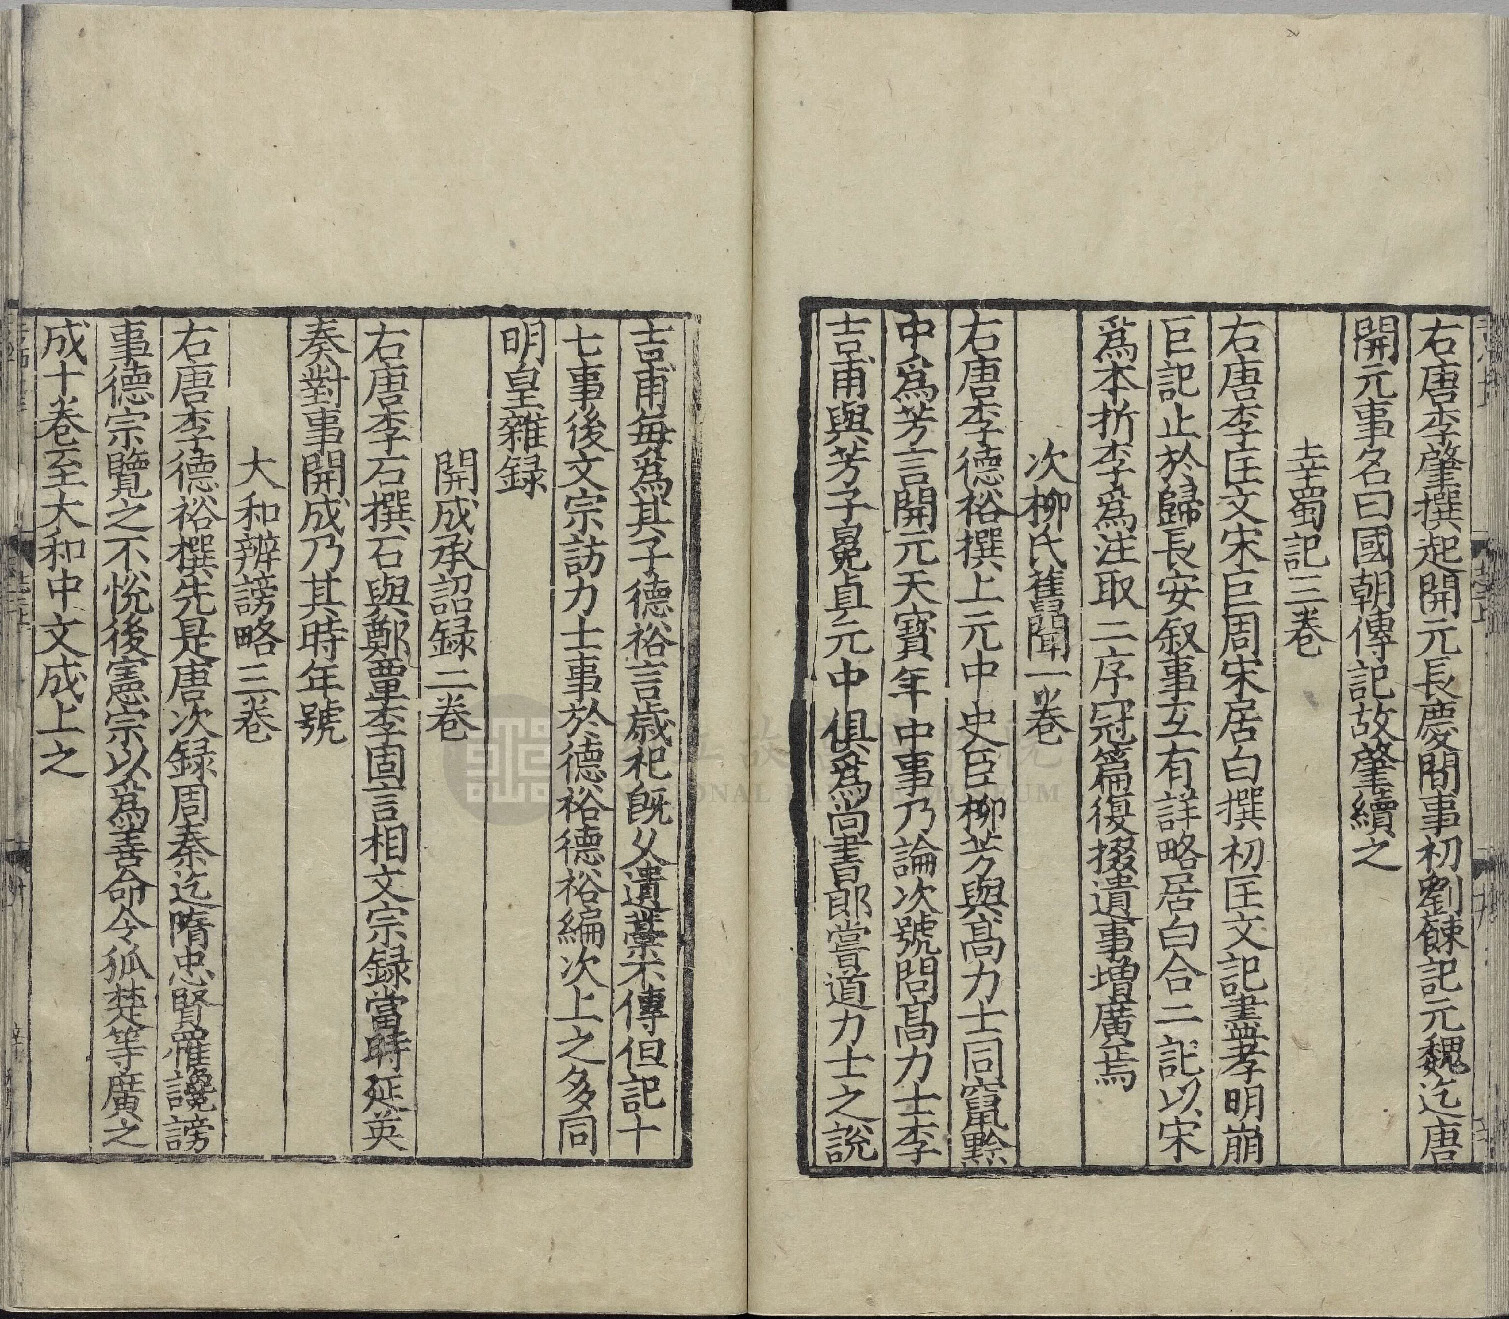 右唐李肇撰起開元長慶間事初劉餗記元魏迄唐
開元事名曰國朝傳記故肇續之
幸蜀記三卷
右唐李匡文宋巨周宋居白撰初匡文記盡孝明崩
巨記止於歸長安叙事互有詳略居白合二記以宋
爲本折李爲注取二序冠篇復掇遺事增廣焉
次柳氏舊聞一卷
右唐李德裕撰上元中史臣柳芳與高力士同竄黔
中爲芳言開元天寶年中事乃論次號問高力士李
吉甫與芳子冕貞元中俱爲尚書郎嘗道力士之說
吉甫每爲其子德裕言歲祀旣乆遺藁不傳但記十
七事後文宗訪力士事於德裕德裕編次上之多同
明皇雜録
開成承詔録二卷
右唐李石撰石與鄭覃李固言相文宗録當時延英
奏對事開成乃其時年號
大和辨謗略三卷
右唐李德裕撰先是唐次録周秦迄隋忠賢罹讒謗
事德宗覽之不悅後憲宗以爲善命令狐楚等廣之
成十卷至大和中文成上之
NATIONAL PALACE MUSEUM